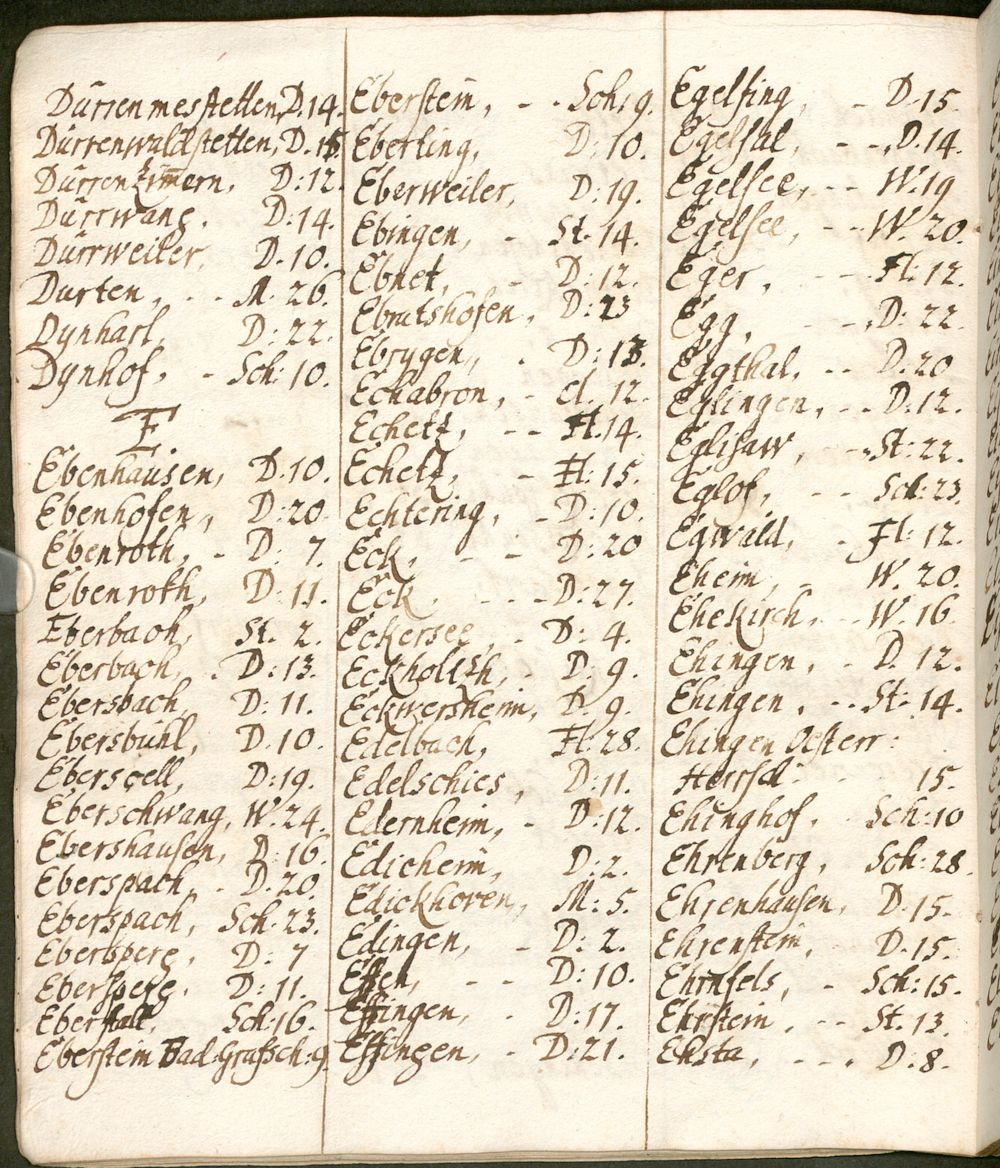 Dürrenmesstetten, D. 14.
Dürrenwaldstetten, D. 15
Dürrenzimern, D: 12.
Dürrwang, D: 14.
Dürrweiler, D. 10.
Durten, - - M. 26.
Dynharl, D: 22.
Dynhof, - Sch: 10.
E.
Ebenhausen, D. 10.
Ebenhofen, D: 20.
Ebenroth, - D: 7.
Ebenroth, D: 11.
Eberbach, St. 2.
Eberbach, . D: 13.
Ebersbach, D: 11.
Ebersbühl, D. 10.
Eberscell, D: 19.
Eberschwang, W. 24.
Ebershausen, D: 16.
Eberspach, - D. 20.
Eberspach, Sch. 23.
Ebersperg, D: 7
Ebersperg, D: 11.
Eberstall, Sch: 16.
Eberstein Bad. Grafsch: 9.
Eberstein, - - Sch: 9.
Eberting, D: 10.
Eberweiler, D: 19.
Ebingen, - St. 14.
Ebnet, - D: 12.
Ebratshofen, D: 23
Ebrygen, . D: 13.
Echabron, - cl. 12.
Echetz, - - Fl. 14.
Echetz, - Fl: 15.
Echtering, - D: 10.
Eck, - - D: 20
Eck, - - - D: 27.
Eckersee, - D: 4.
Eckholtzh, - D: 9.
Eckwersheim, D. 9.
Edelbach, Fl: 28.
Edelschies, D: 11.
Edernheim, - D: 12.
Edicheim, D: 2.
Edickhoven, M: 5.
Edingen, - D: 2.
Effen, - - D: 10.
Effingen, - D: 17.
Effingen, - D: 21.
Egelfing, - D. 15.
Egelsal, - - D. 14.
Egelsee, - - W. 19
Egelsee, - - W. 20.
Eger, - - - Fl: 12.
Egg, - - D: 22.
Eggthal, - - D. 20
Eglingen, - - D: 12.
Eglisaw, - St: 22.
Eglof, - - Sch: 23.
Egwaid, - Fl: 12.
Eheim, - W. 20.
Ehekirch, - W. 16.
Ehingen, - D. 12.
Ehingen, - - St: 14.
Ehingen Oesterr:
Herrsch - 15.
Ehinghof, - Sch: 10
Ehrenberg, Sch: 28.
Ehrenhausen, D. 15.
Ehrenstein, D. 15.
Ehrnfels, - Sch: 15.
Ehrstein, - - St. 13.
Eksta, - - - D: 8.